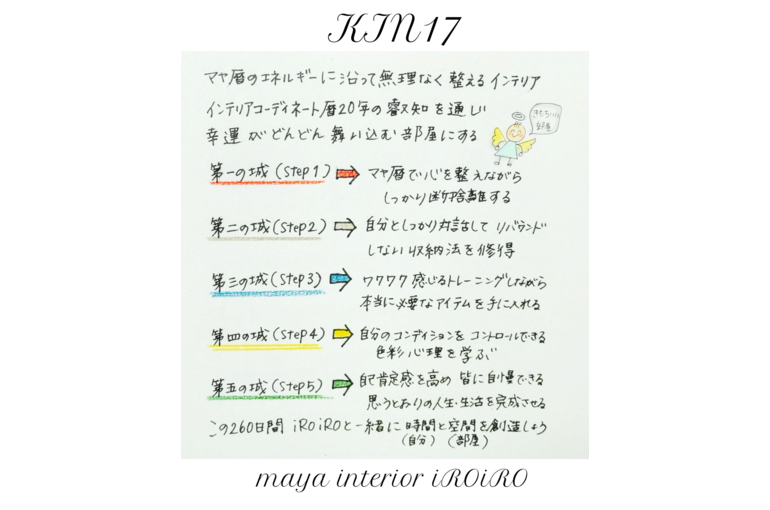 KIN17
マヤ暦のエネルギーに沿って無理なく整えるインテリア
インテリアコーディネート暦20年の叡知を通し
幸運がどんどん舞い込む部屋にする
きもちいい
部屋
第一の城(Step1)
マヤ暦で心を整えながら
しっかり断捨離する
第二の城(Step2)
自分としっかり対話して リバウンド
しない収納法を修得
第三の城(Step3)
ワクワク感じるトレーニングしながら
本当に必要なアイテムを手に入れる
第四の城(Step4)
自分のコンディションをコントロールできる
色彩心理を学ぶ
第五の城(Step5)
自己肯定感を高め 皆に自慢できる
思うとおりの人生・生活を完成させる
この260日間 iROiROと一緒に時間と空間を創造しよう
(自分) (部屋)
maya interior iROiRO